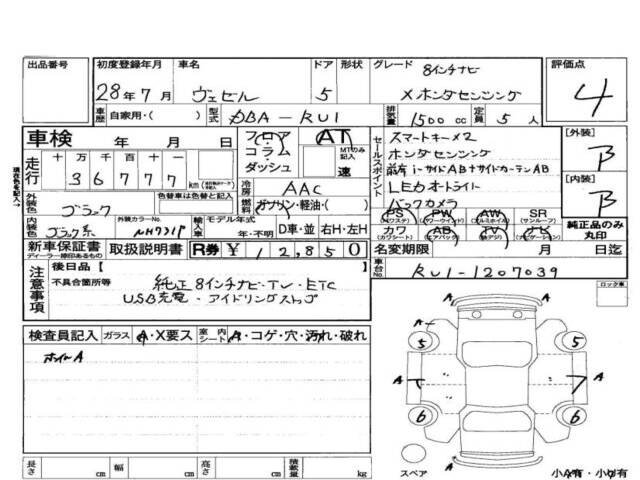 出品番号 初度登録年月 車名 ドア 形状 グレード 評価点
8インチナビ
28年7月 ヴェゼル 5 Xホンダセンシング 4
車歴 自家用・( ) 型式 DBA-RU1 排気量 1500cc 定員 5人
車検 年 月 日 フロア AT セールスポイント スマートキー×2 [外装] B
コラム MTのみ記入 ホンダセンシング
ダッシュ 速 前席i-サイドAB+サイドカーテンAB
走行 十万千百十一 36777 km 冷房 AAC LEDオートライト [内装] B
ガソリン・軽油・( ) バックカメラ
外装色 ブラック 色替車は色替と記入
PS PW AW SR
(パワステ) (パワーウインド) (アルミホイル) (サンルーフ)
カワ AB TV ナビ 純正品のみ丸印
(カワシート) (エアバッグ) (ナビゲーション)
内装色 ブラック系 外装カラーNo. NH731P 輸入車 モデル年式 年・不明 D車・並 右H・左H
新車保証書 取扱説明書 R券 ¥12,850 名変期限 月 日迄
ディーラー捺印あるもの
車台No. RU1-1207039
注意事項 後日品[ ]
不具合箇所等 純正8インチナビ・TV・ETC
USB充電・アイドリングストップ
ロック車
検査員記入 ガラス A・X要ス 室内シート A・コゲ・穴・汚れ・破れ
ホイルA
A A
5 5
A A
6 6
スペア A 小A有・小U有
長さ cm 幅 cm 高さ cm 積載量 kg